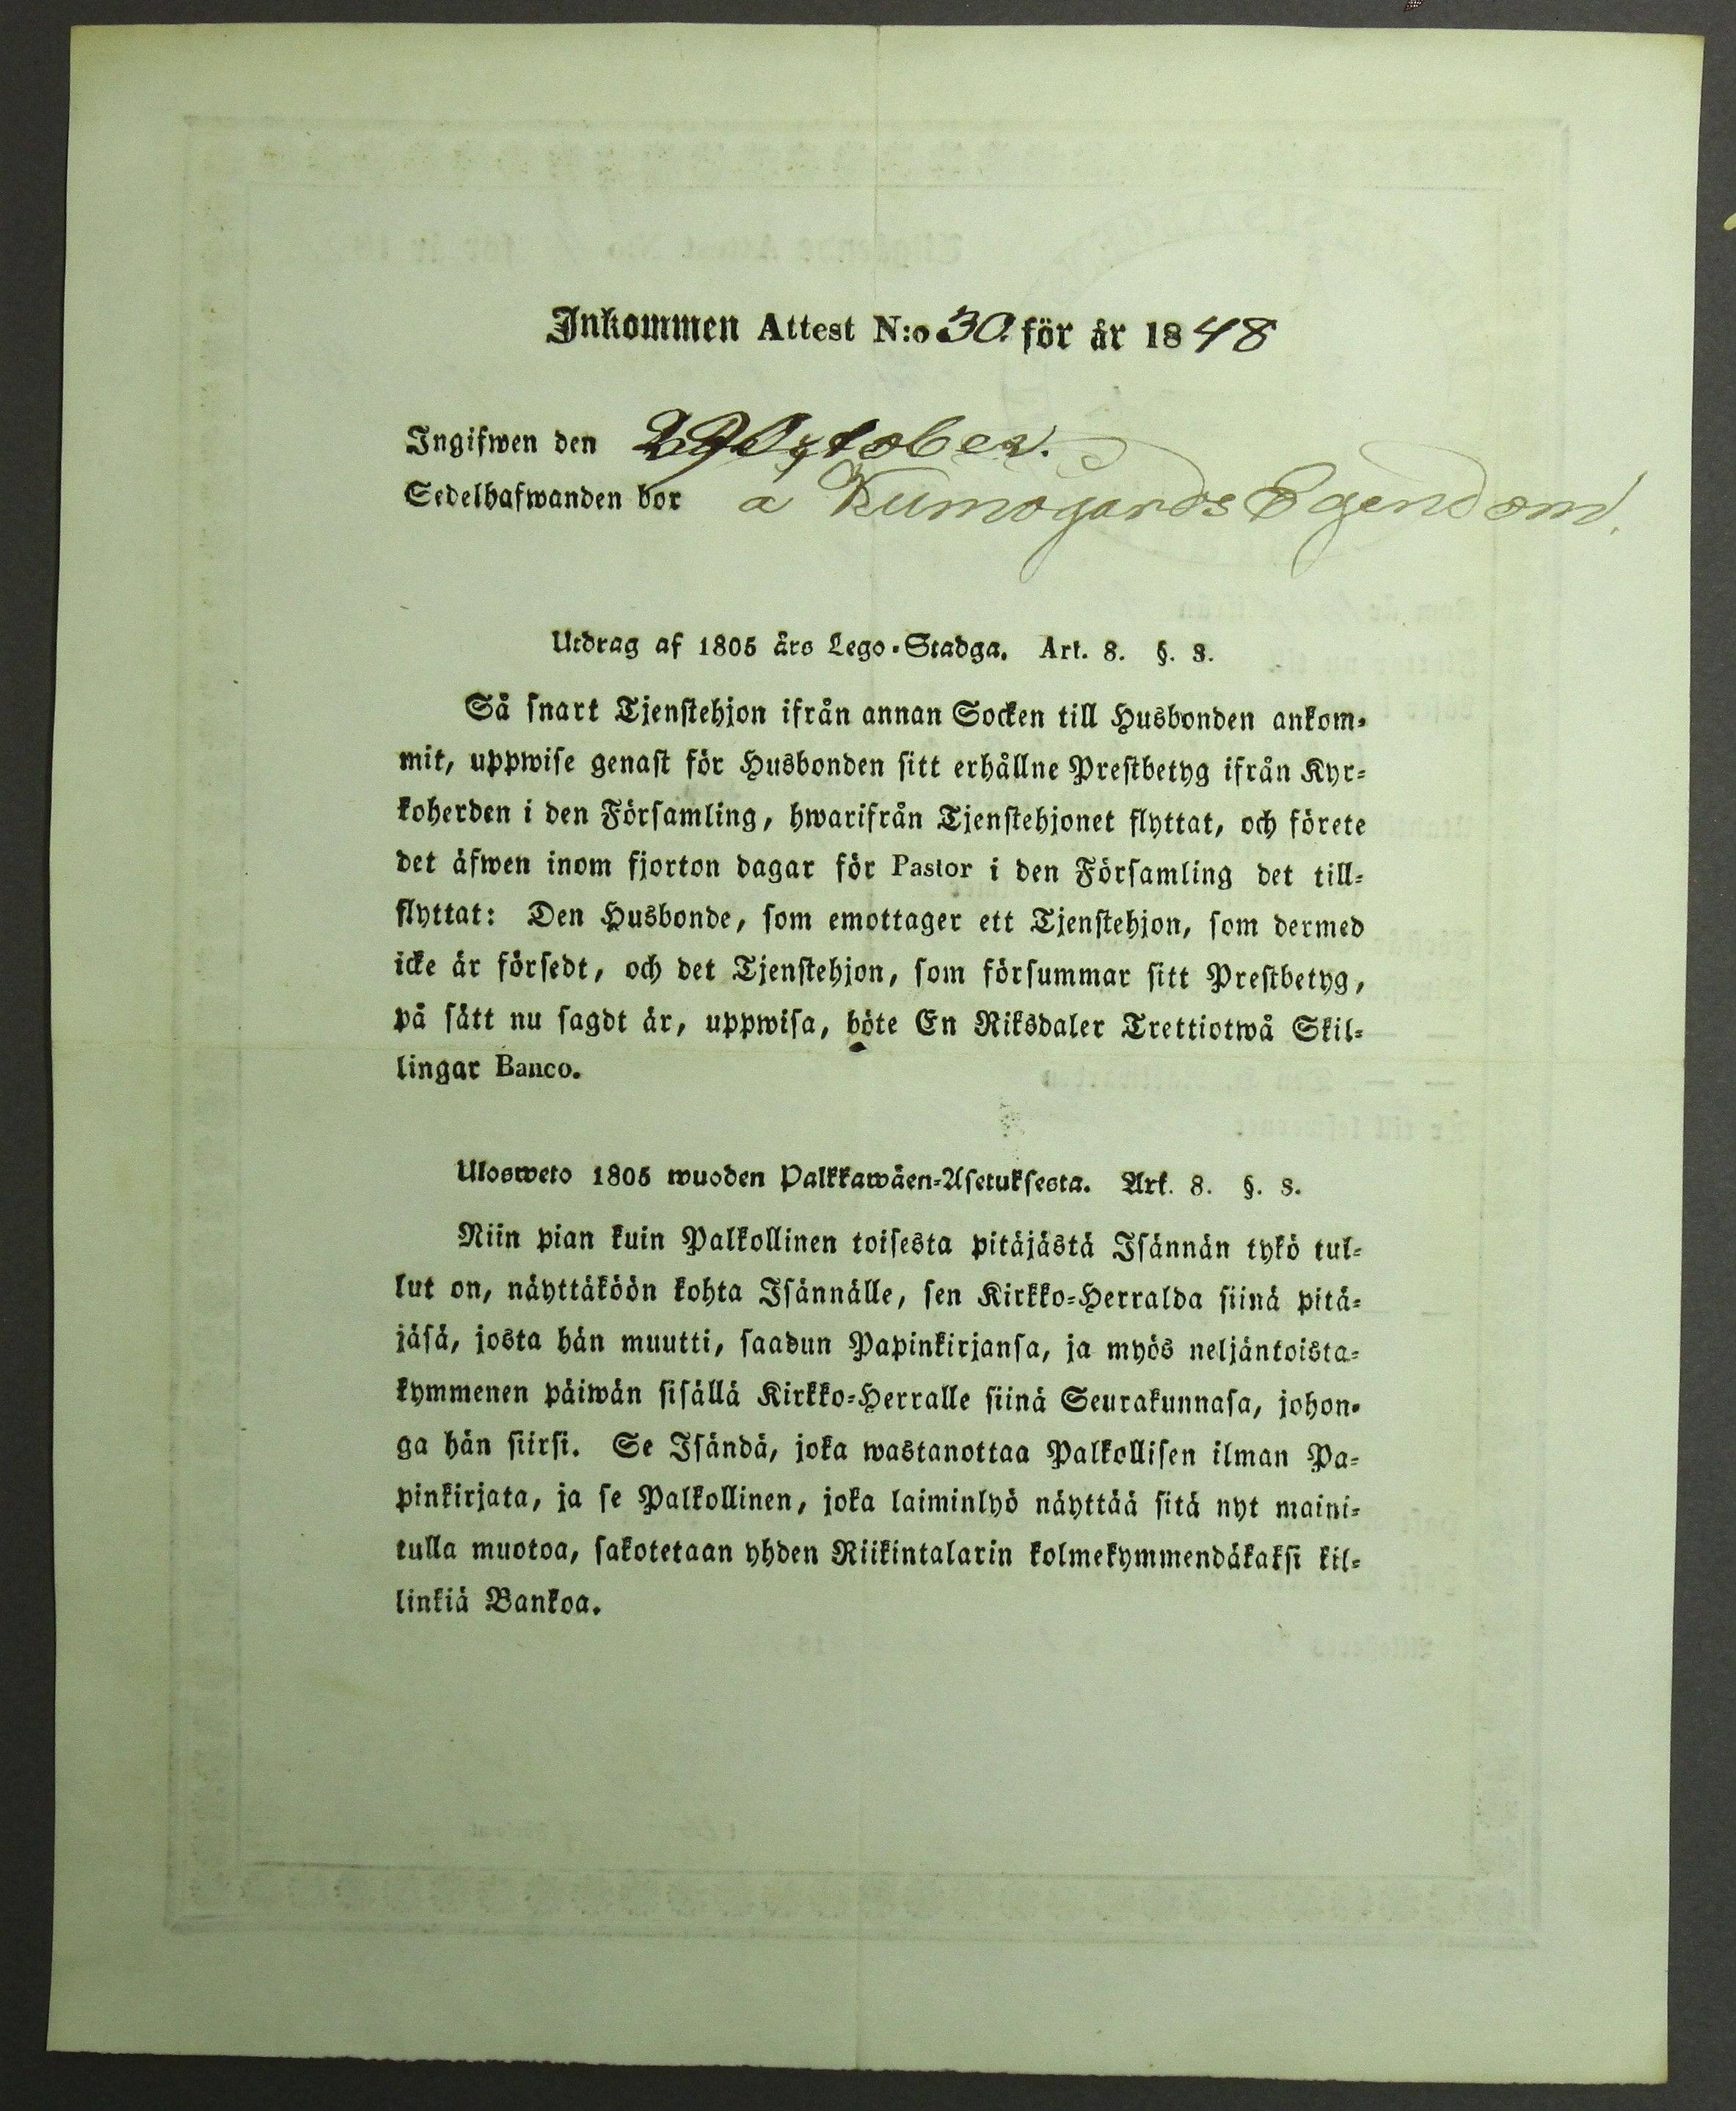 Inkommen Attest N:o 30. för år 1848
Ingifwen den 29 October.
Sedelhafwanden bor å Kumogårds Egendom.
Utdrag af 1805 års Lego-Stadga. Art. 8. §. 8.
Så snart Tjenstehjon ifrån annan Socken till Husbonden ankom-
mit, uppwise genast för Husbonden sitt erhållne Prestbetyg ifrån Kyr-
koherden i den Församling, hwarifrån Tjenstehjonet flyttat, och förete
det äfwen inom fjorton dagar för Pastor i den Församling det till-
flyttat: Den Husbonde, som emottager ett Tjenstehjon, som dermed
icke är försedt, och det Tjenstehjon, som försummar sitt Prestbetyg,
på sätt nu sagdt är, uppwisa, böte En Riksdaler Trettiotwå Skil-
lingar Banco.
Ulosweto 1805 wuoden Palkkawäen-Asetuksesta. Art. 8. §. 8.
Niin pian kuin Palkollinen toisesta pitäjästä Isännän tykö tul-
lut on, näyttäköön kohta Isännälle, sen Kirkko-Herralda siinä pitä-
jäsä, josta hän muutti, saadun Papinkirjansa, ja myös neljäntoista-
kymmenen päiwän sisällä Kirkko-Herralle siinä Seurakunnasa, johon-
ga hän siirsi. Se Isändä, joka wastanottaa Palkollisen ilman Pa-
pinkirjata, ja se Palkollinen, joka laiminlyö näyttää sitä nyt maini-
tulla muotoa, sakotetaan yhden Riikintalarin kolmekymmendäkaksi kil-
linkiä Bankoa.